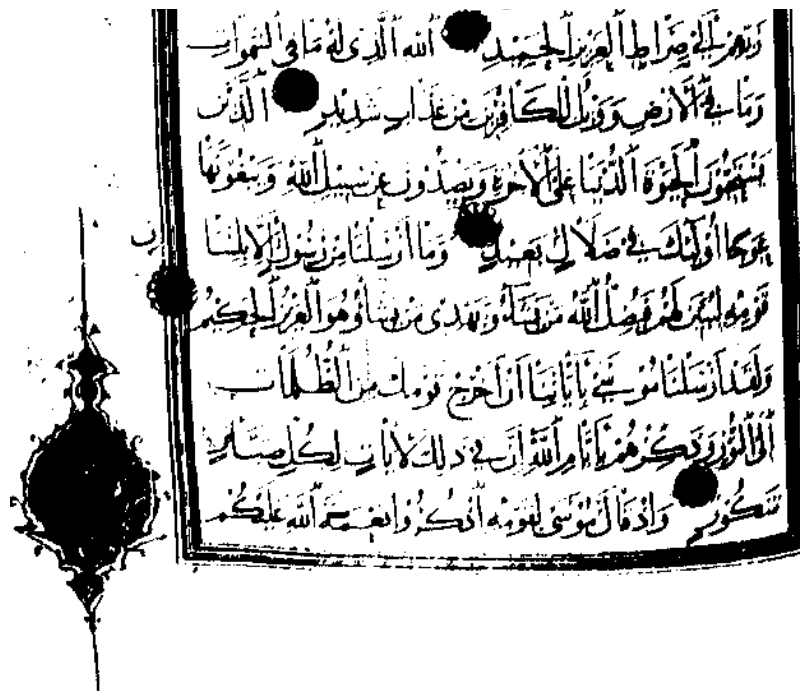 ربهم إلى صراط العزيز الحميد الله الذى له ما فى السموات
وما فى الأرض وويل للكافرين من عذاب شديد الذين
يستحبون الحيوة الدنيا على الآخرة ويصدون عن سبيل الله ويبغونها
عوجا أولئك فى ضلال بعيد وما أرسلنا من رسول إلا بلسان
قومه ليبين لهم فيضل الله من يشاء ويهدى من يشاء وهو العزيز الحكيم
ولقد أرسلنا موسى بآياتنا أن أخرج قومك من الظلمات
إلى النور وذكرهم بأيام الله إن فى ذلك لآيات لكل صبار
شكور وإذ قال موسى لقومه اذكروا نعمة الله عليكم